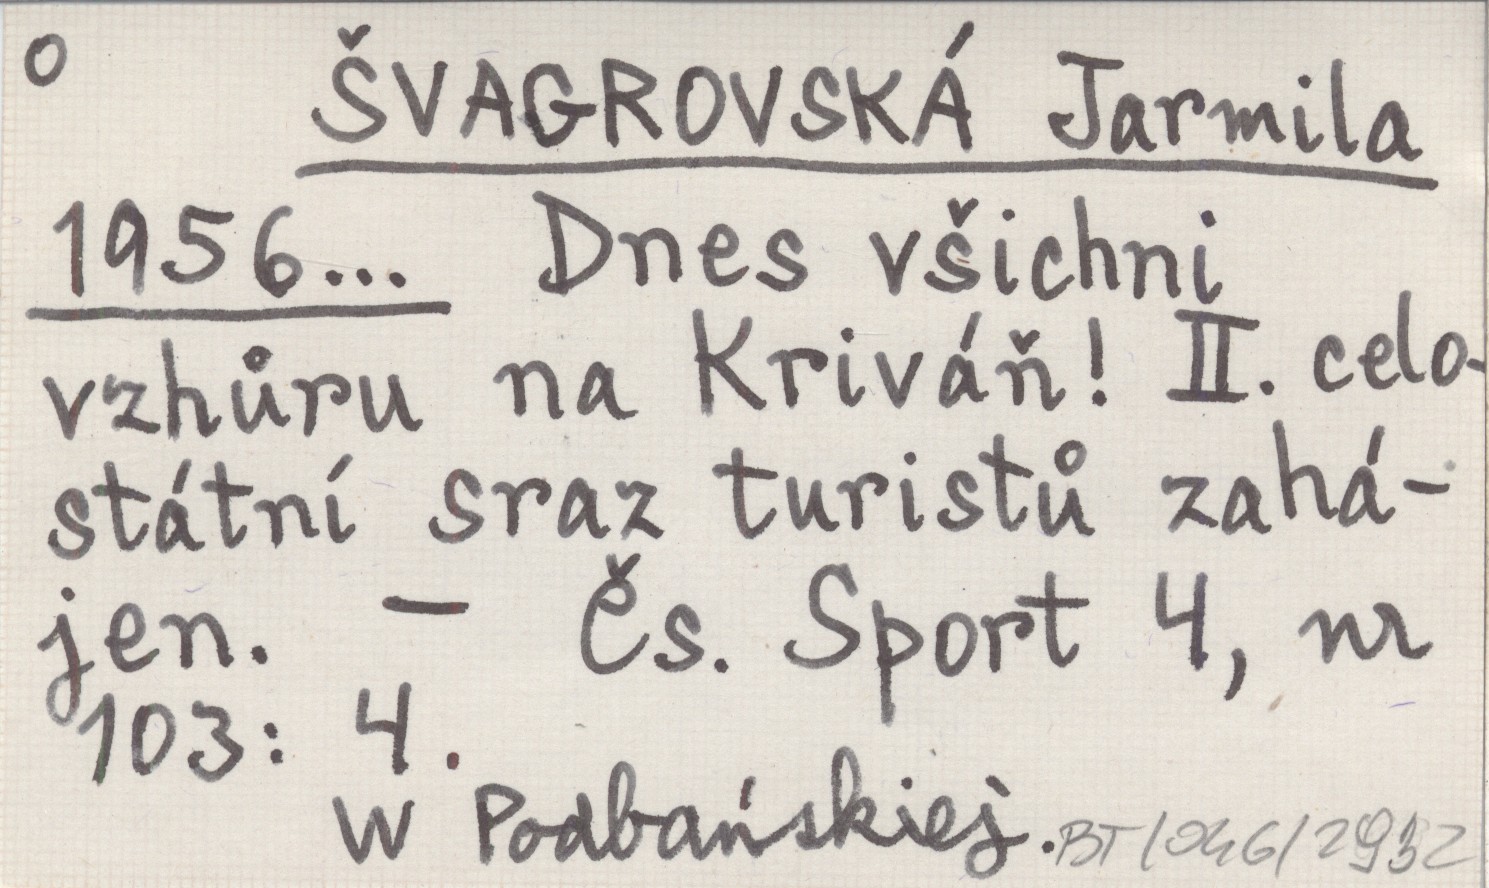 O ŠVAGROVSKÁ Jarmila
1956... Dnes všichni
vzhůru na Kriváň! II. celo-
státní sraz turistů zahá-
jen. — Čs. Sport 4, nr
103: 4.
W Podbańskiej. BT/046/2932